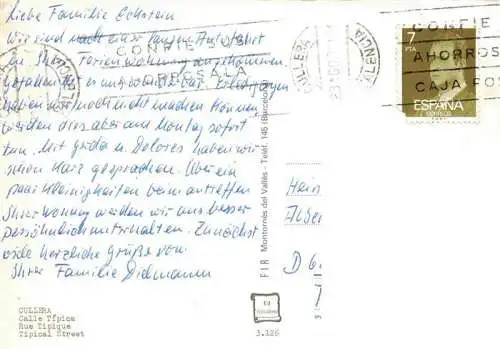 Liebe Familie Eckstein
Wir sind nach einer langen Autofahrt
in Ihrer Ferienwohnung angekommen.
haben wir noch nicht machen können,
werden dies aber am Montag sofort
tun. Mit Dolores haben wir
schon kurz gesprochen. Über ein
paar Kleinigkeiten beim antreffen
Ihrer Wohnung werden wir uns besser
persöhnlich unterhalten. Zunächst
viele herzliche Grüße von
Ihrer Familie Diedmann
CONFIE SUS
AHORROS A LA
CULLERA
VALENCIA
7
PTA
ESPAÑA
CORREOS
CONFIE
AHORROS
CAJA POS
FIR Montornés del Vallés - Teléf. 145 (Barcelona)
Hein
D 6
3.126
CULLERA
Calle Típica
Rue Tipique
Tipical Street